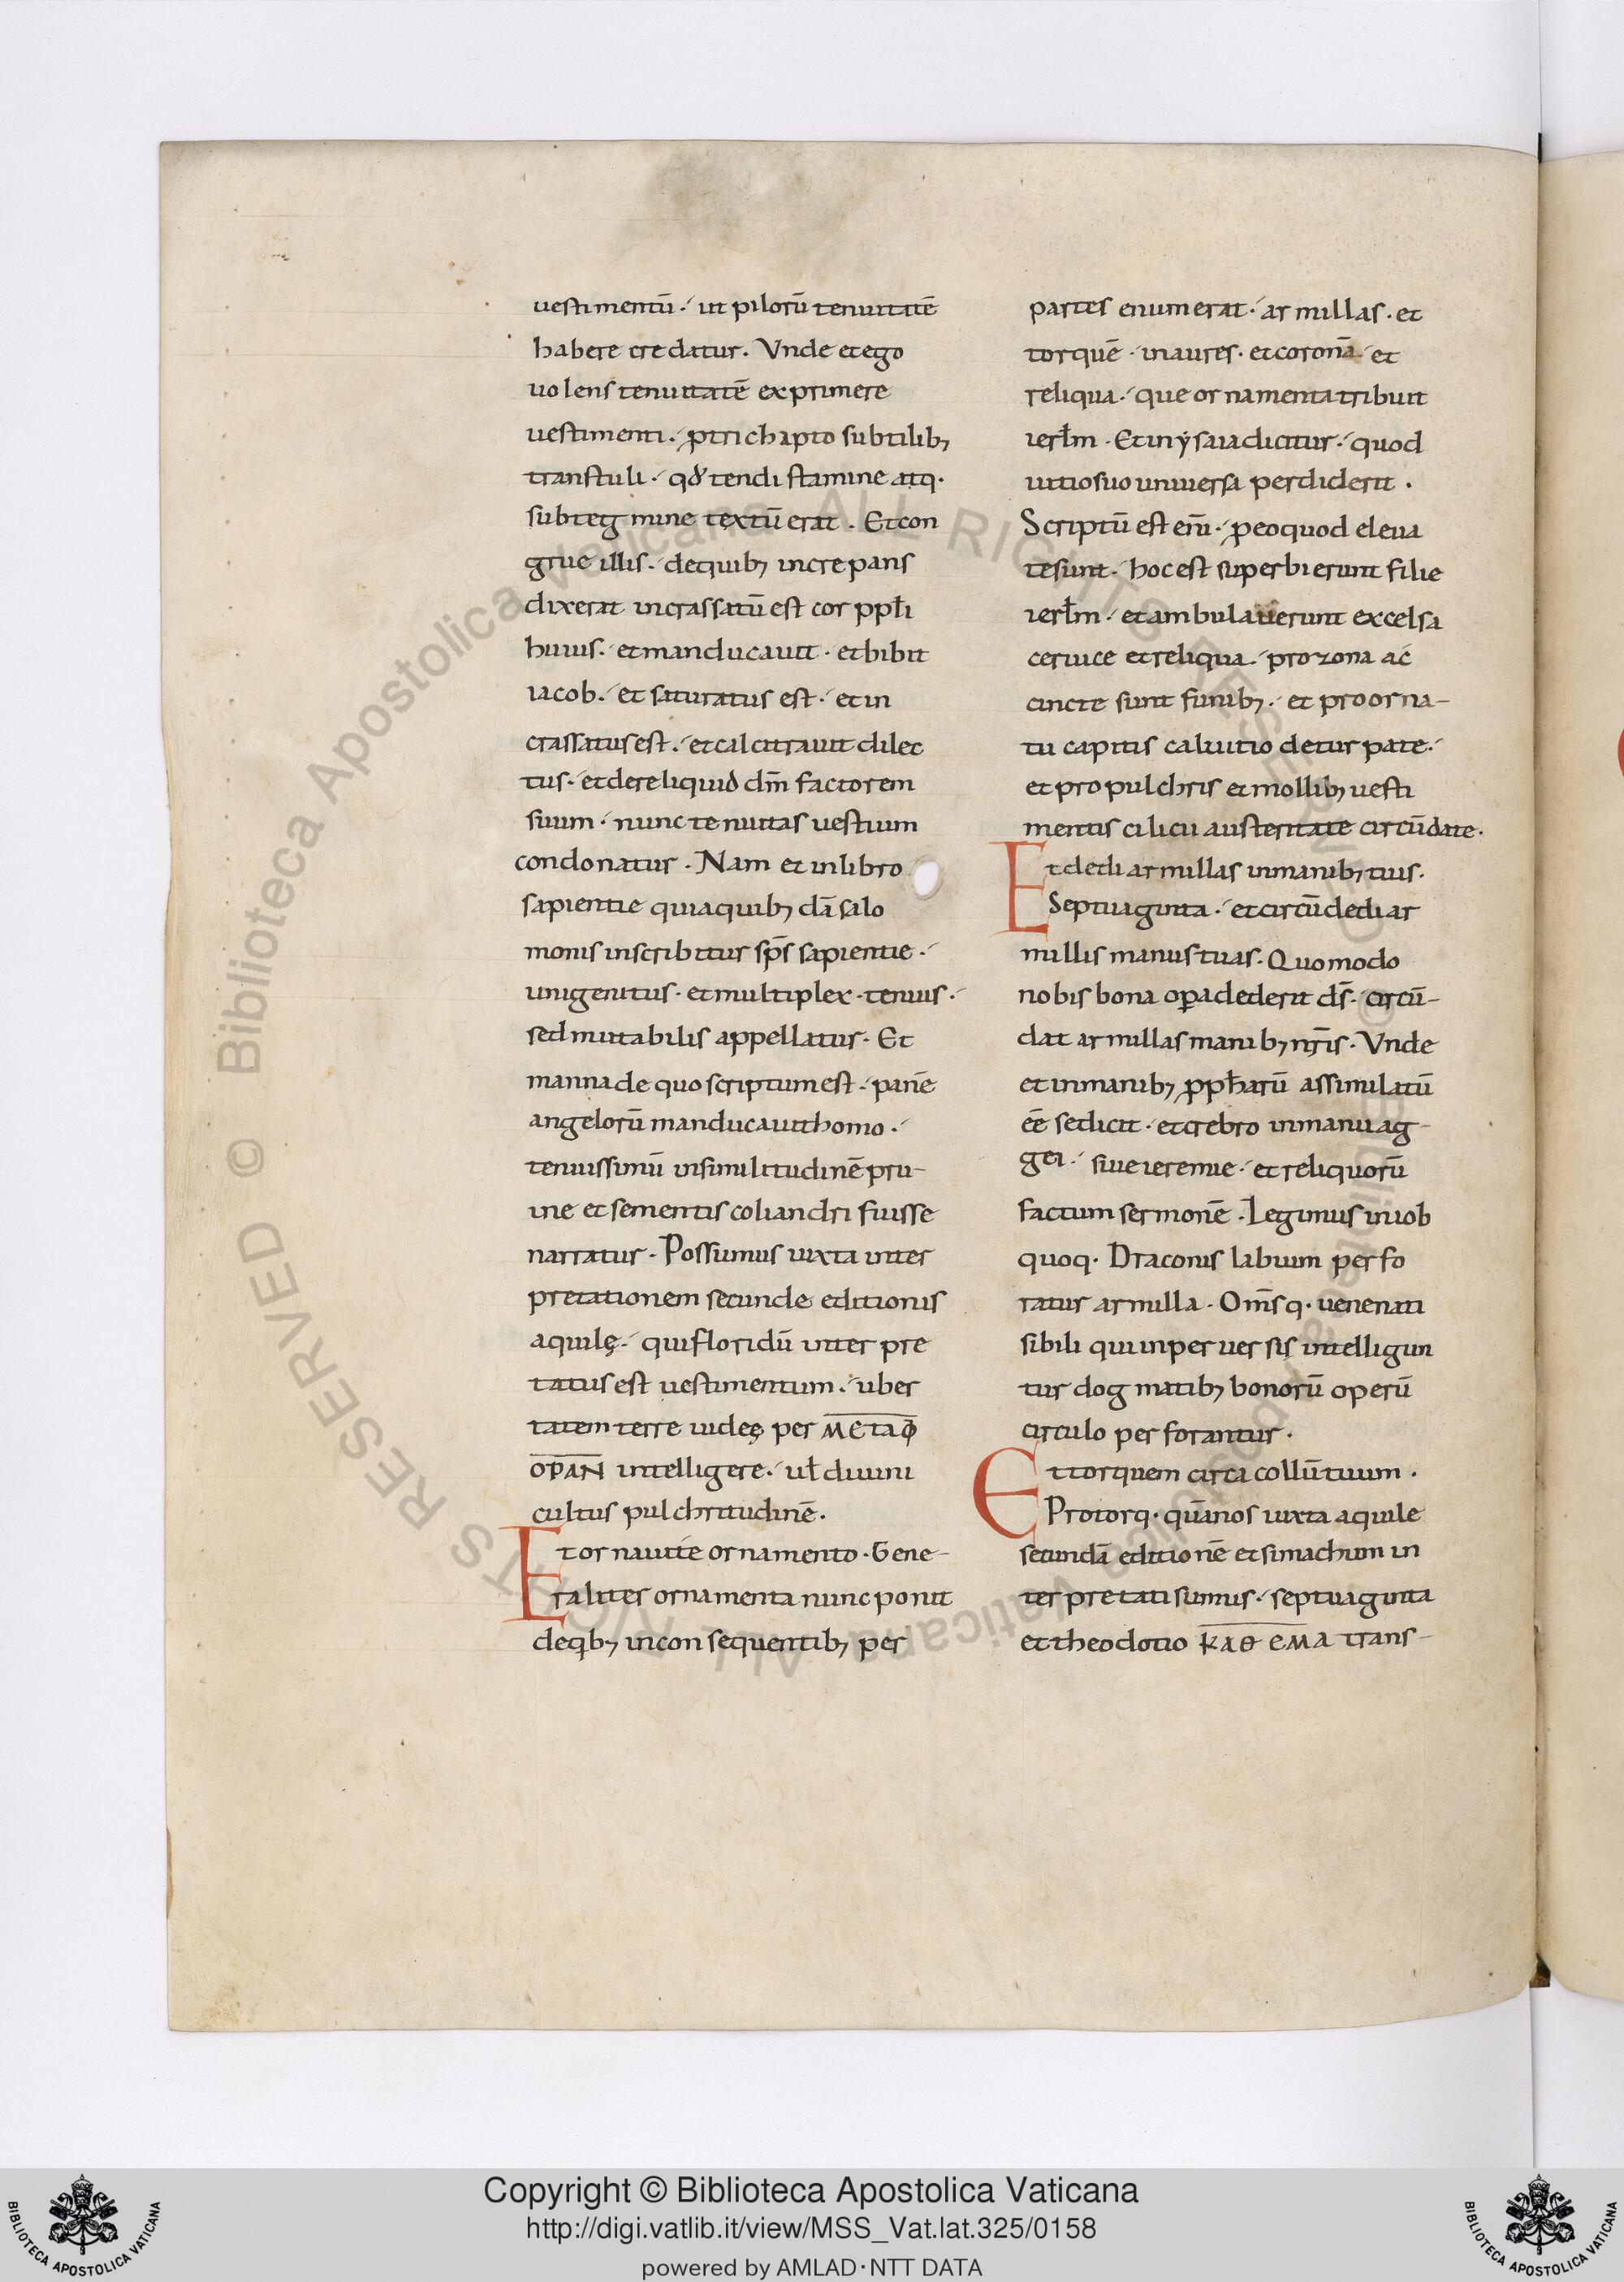 uestimentū· ut pilorū tenuitatē
habere credatur. Vnde et ego
uolens tenuitatē exprimere
uestimenti· ꝓ trichapto subtilibꝫ
transtuli· qđ tendi stamine atq·
subtegmine textū erat. Et con
grue illis· de quibꝫ increpans
dixerat incrassatū est cor ppłi
huius· et manducauit· et bibit
iacob· et saturatus est· et in
crassatus est· et calcitrauit dilec
tus· et dereliquid dm̄ factorem
suum· nunc tenuitas uestium
condonatur. Nam et in libro
sapientie quia quibꝫdā salo
monis inscribitur sp̄s sapientie·
unigenitus· et multiplex· tenuis·
sed mutabilis appellatur. Et
manna de quo scriptum est· panē
angelorū manducauit homo·
tenuissimū in similitudinē pru-
ine et sementis coliandri fuisse
narratur. Possumus iuxta inter
pretationem secunde editionis
aquilę· qui floridū inter pre
tatus est uestimentum· uber
tatem terre iudeę per ΜΕΤΑΦ
ΟΡΑΝ intelligere· uł diuini
cultus pulchritudinē.
Et ornaui te ornamento. Gene-
raliter ornamenta nunc ponit
de qꝫbꝫ in consequentibꝫ per
partes enumerat· armillas· et
torquē· inaures· et coronā· et
reliqua· que ornamenta tribuit
ierłm. Et in ẏsaia dicitur· quod
uitio suo uniuersa perdiderit.
Scriptū est eni̅· ꝓ eo quod eleua
te sunt· hoc est superbierunt filie
ierłm· et ambulauerunt excelsa
ceruice et reliqua· pro zona ac
cincte sunt funibꝫ· et pro orna-
tu capitis caluitio deturpate·
et pro pulchris et mollibꝫ uesti
mentis cilicii austeritate circūdate.
Et dedi armillas in manibꝫ tuis.
Septuaginta· et circūdedi ar
millis manus tuas. Quomodo
nobis bona oꝑa dederit ds̄· circū-
dat armillas manibꝫ nr̄is. Vnde
et in manibꝫ ꝓpħarū assimilatū
eē se dicit· et crebro in manu ag-
gei· siue ieremie· et reliquorū
factum sermonē. Legimus in iob
quoq· Draconis labium perfo
ratur armilla. Om̄sq· uenenati
sibili qui in peruersis intelligun
tur dogmatibꝫ bonorū operū
circulo perforantur.
Et torquem circa collū tuum.
Pro torq· quā nos iuxta aquile
secundā editionē et simachum in
terpretati sumus· septuaginta
et theodotio ΚΑΘΕΜΑ trans-
Copyright © Biblioteca Apostolica Vaticana
http://digi.vatlib.it/view/MSS_Vat.lat.325/0158
powered by AMLAD·NTT DATA